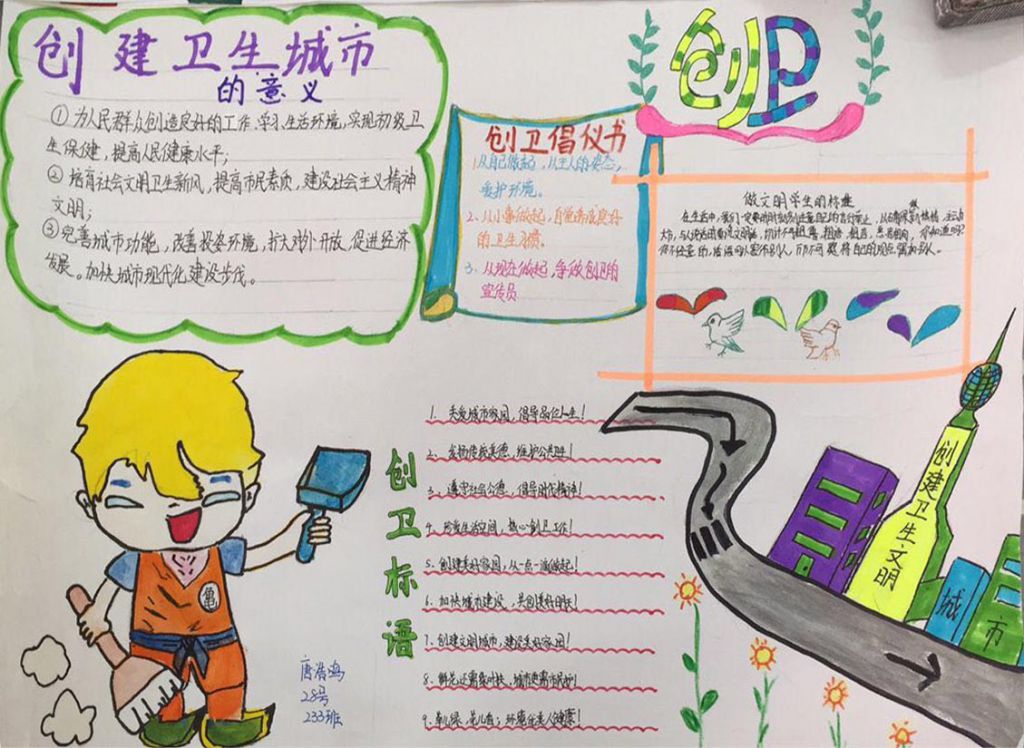 创建卫生城市
的意义
①为人民群众创造良好的工作、学习、生活环境,实现初级卫
生保健,提高人民健康水平;
②培育社会文明卫生新风,提高市民素质,建设社会主义精神
文明;
③完善城市功能,改善投资环境,扩大对外开放,促进经济
发展。加快城市现代化建设步伐。
创卫倡仪书
1.从自己做起,以主人的姿态,
爱护环境。
2、从小事做起,自觉养成良好
的卫生习惯。
3、从现在做起,争做创卫的
宣传员
创卫
做文明学生的标准
创卫标语
1、关爱城市家园,倡导品位人生!
2、发扬传统美德,维护公共卫生!
3、遵守社会公德,倡导时代精神!
4、珍爱生活空间,热心创卫工作!
5、创建美好家园,从一点一滴做起!
6、加快城市建设,共创美好明天!
7、创建文明城市,建设美好家园!
8、鲜花还需绿叶扶,城市更需市民护!
9、草儿绿,花儿香;环境优美人健康!
龟
唐浩鸿
28号
233班
创建卫生文明
城
市